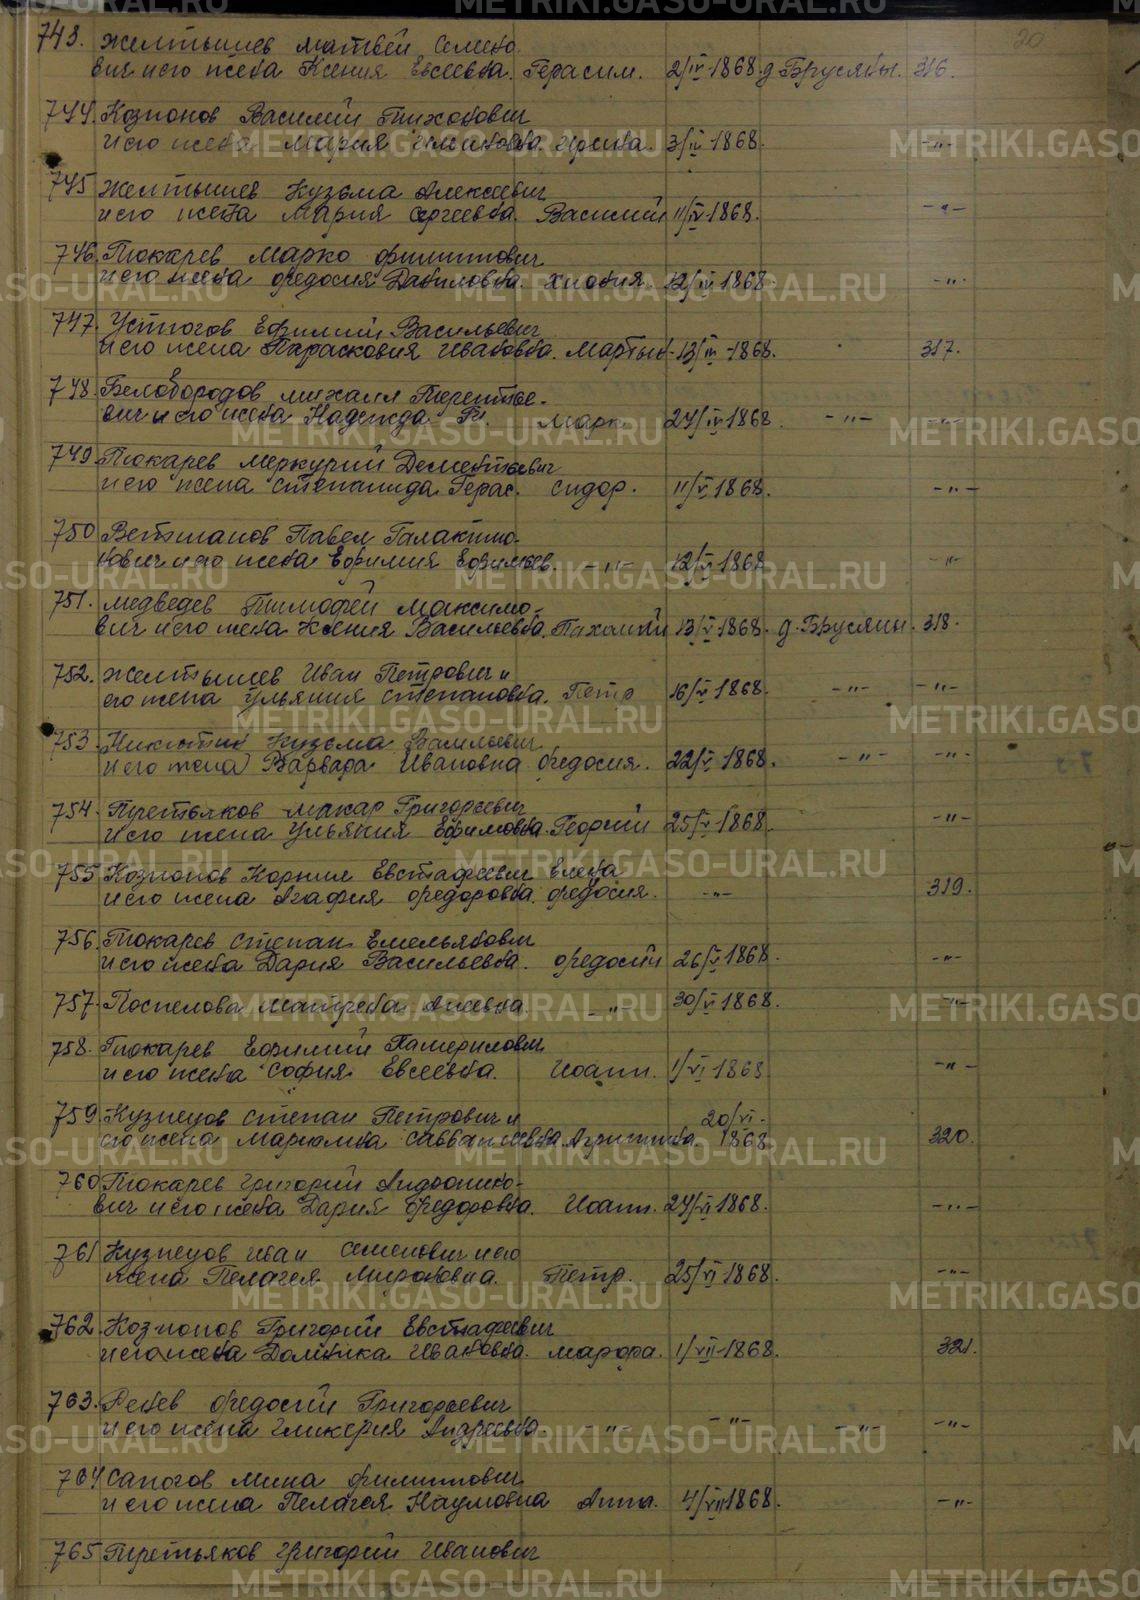 20
743. Желтышев Матвей Семено-
вич и его жена Ксения Евсеевна. Герасим. 2/IV-1868. д Брусяны. 316.
744. Козионов Василий Тихонович
и его жена Мария Ирина. 3/IV-1868. -"-
745 Желтышев Кузьма Алексеевич
и его жена Мария Сергеевна. Василий 11/IV-1868. -"-
746. Токарев Марко Филиппович
и его жена Федосия Даниловна. Хиония. 12/IV-1868. -"-
747. Устюгов Ефимий Васильевич
и его жена Парасковия Ивановна. Мартын 13/IV-1868. 317.
748. Белобородов Михаил Терентье-
вич и его жена Надежда Марк 24/IV-1868. -"- -"-
749. Токарев Меркурий Дементьевич
и его жена Степанида Герас. Сидор. 11/V 1868. -"-
750 Ветошанов Павел Галактио-
нович и его жена Ефимия Ефимьев. -"- 12/V-1868 -"-
751. Медведев Тимофей Максимо-
вич и его жена Ксения Васильевна. Пахомий 13/V-1868. д. Брусяны. 318.
752. Желтышев Иван Петрович и
его жена Ульяния Степановна. Петр 16/V-1868. -"- -"-
753. Никитин Кузьма Васильевич
и его жена Варвара Ивановна Федосия. 22/V-1868. -"- -"-
754. Третьяков Макар Григорьевич
и его жена Ульяния Ефимовна. Георгий 25/V-1868. -"-
755 Козионов Корнил Евстафьевич Елена
и его жена Агафия Федоровна. Федосия. -"- 319.
756. Токарев Степан Емельянович
и его жена Дария Васильевна. Федосий 26/V-1868. -"-
757. Поспелова Матрена -"- 30/V-1868. -"-
758. Токарев Ефимий
и его жена София Евсеевна. Иоанн. 1/VI-1868 -"-
759. Кузнецов Степан Петрович и 20/VI-
его жена Марюмна Савватеевна. Агриппина. 1868 320.
760 Токарев Григорий Андронико-
вич и его жена Дария Федоровна. Иоанн. 24/VI-1868. -"-
761 Кузнецов Иван Семенович и его
жена Пелагея Мироновна. Петр. 25/VI-1868. -"-
762. Козионов Григорий Евстафьевич
и его жена Домника Ивановна. Мавра. 1/VII-1868. 321.
763. Ренев Федосий Григорьевич
и его жена Гликерия Андреевна. -"- -"- -"- -"-
764. Сапогов Мина Филиппович
и его жена Пелагея Наумовна Анна. 4/VII 1868. -"-
765 Третьяков Григорий Иванович
METRIKI.GASO-URAL.RU